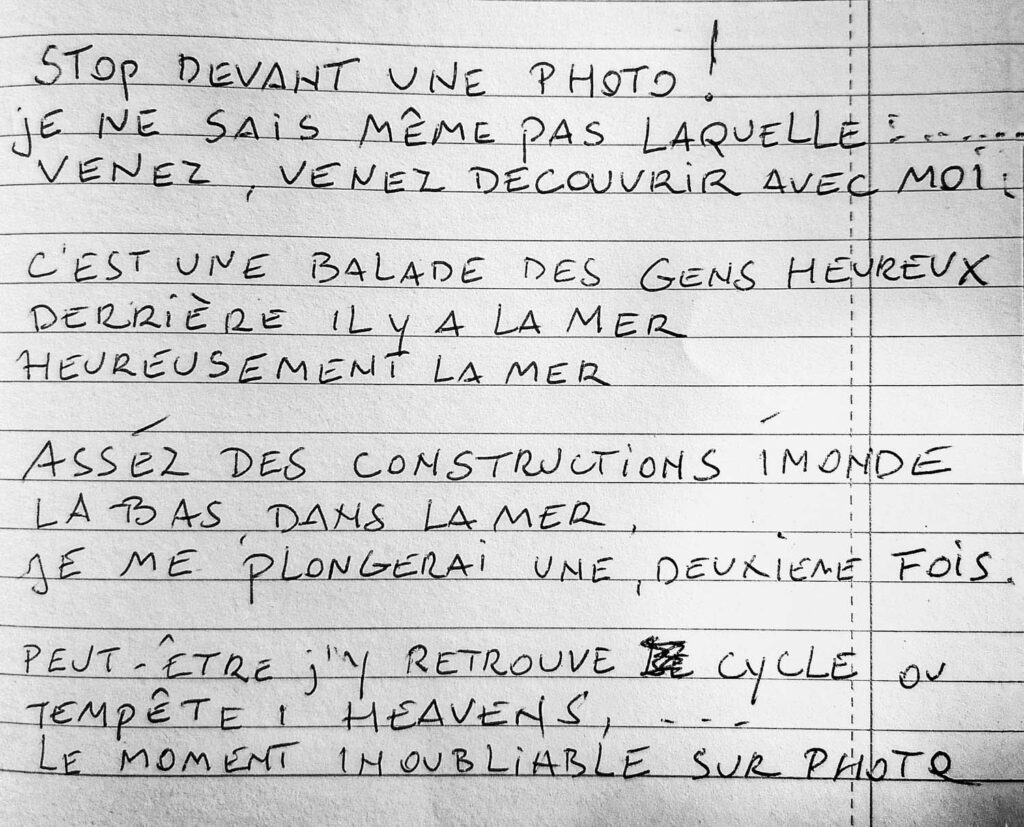 STOP DEVANT UNE PHOTO!
JE NE SAIS MÊME PAS LAQUELLE :........
VENEZ, VENEZ DECOUVRIR AVEC MOI:
C'EST UNE BALADE DES GENS HEUREUX
DERRIÈRE IL Y A LA MER
HEUREUSEMENT LA MER
ASSÉZ DES CONSTRUCTIONS IMONDE
LA BAS DANS LA MER,
JE ME PLONGERAI UNE, DEUXIEME FOIS.
PEUT-ÊTRE J'Y RETROUVE CYCLE OU
TEMPÊTE, HEAVENS, ...
LE MOMENT INOUBLIABLE SUR PHOTO